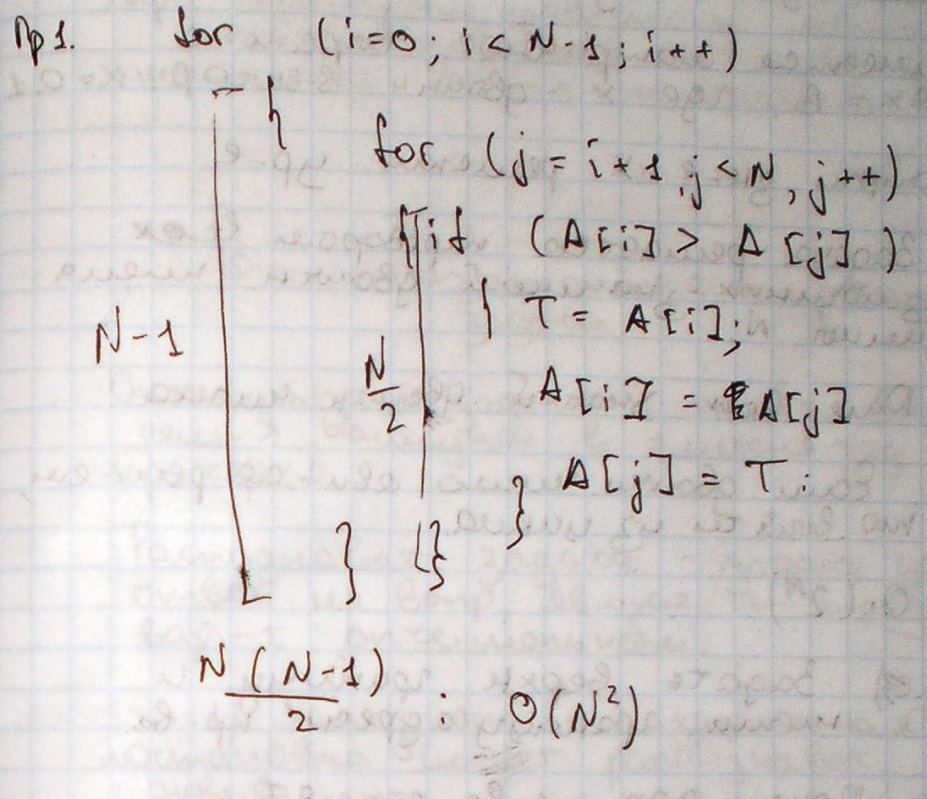 Пр 1. for (i=0; i<N-1; i++)
{
for (j = i+1, j<N, j++)
{ if (A[i] > A[j])
{ T = A[i];
N-1
N/2
A[i] = A[j]
A[j] = T;
} } }
N(N-1)/2 : O(N²)